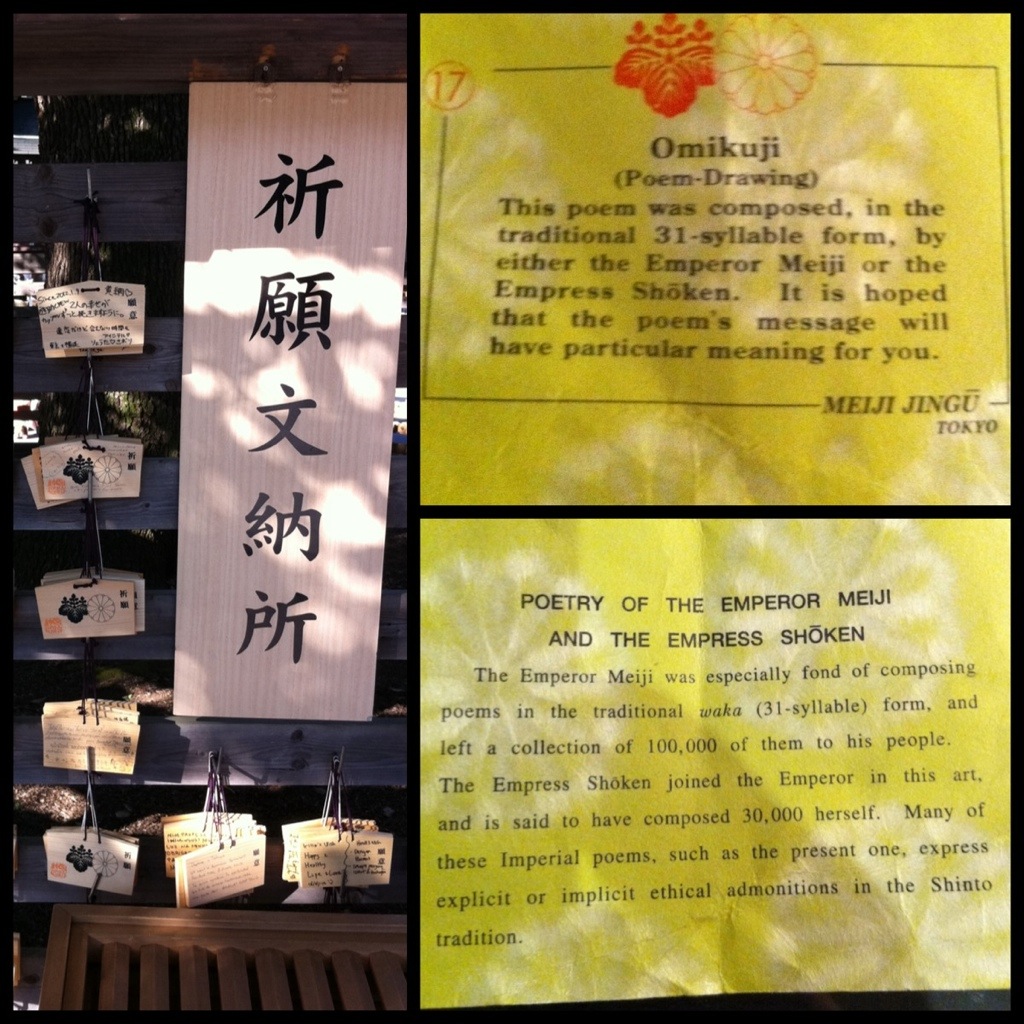 祈願文納所
願意
祈願
祈願
願意
祈願
願意
願意
Happy
Healthy
17
Omikuji
(Poem-Drawing)
This poem was composed, in the
traditional 31-syllable form, by
either the Emperor Meiji or the
Empress Shōken. It is hoped
that the poem's message will
have particular meaning for you.
MEIJI JINGŪ
TOKYO
POETRY OF THE EMPEROR MEIJI
AND THE EMPRESS SHŌKEN
The Emperor Meiji was especially fond of composing
poems in the traditional waka (31-syllable) form, and
left a collection of 100,000 of them to his people.
The Empress Shōken joined the Emperor in this art,
and is said to have composed 30,000 herself. Many of
these Imperial poems, such as the present one, express
explicit or implicit ethical admonitions in the Shinto
tradition.